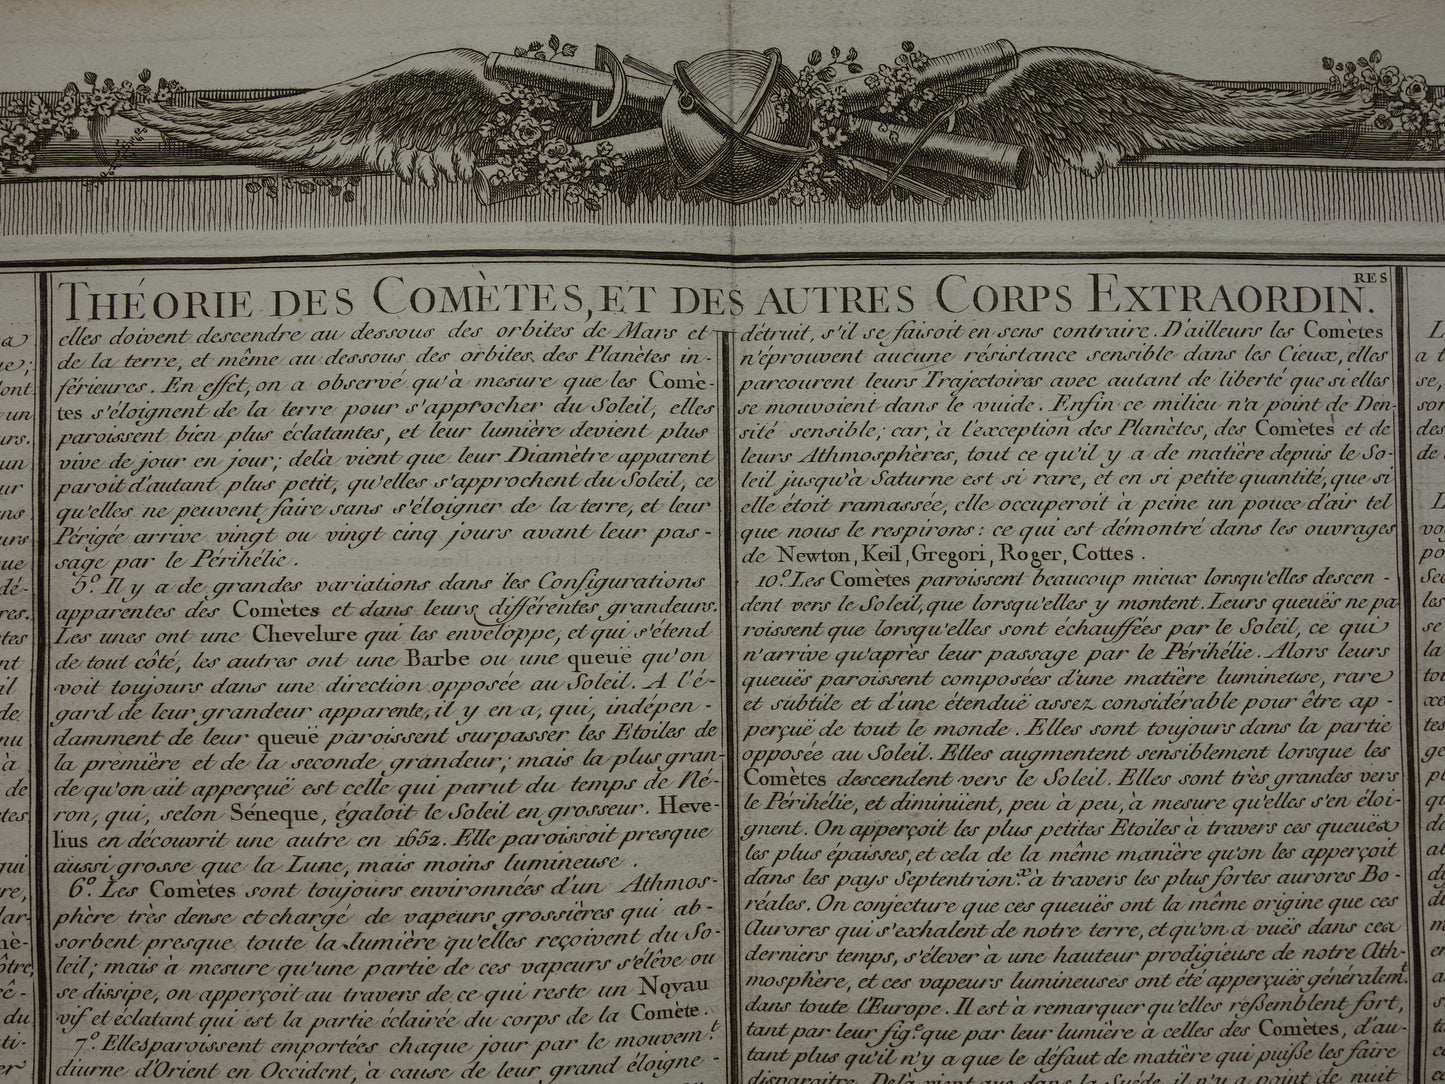 THÉORIE DES COMÈTES, ET DES AUTRES CORPS EXTRAORDIN.RES
elles doivent descendre au dessous des orbites de Mars et
de la terre, et même au dessous des orbites des Planètes in-
férieures. En effet, on a observé qu'à mesure que les Comè-
tes s'éloignent de la terre pour s'approcher du Soleil, elles
paroissent bien plus éclatantes, et leur lumière devient plus
vive de jour en jour; delà vient que leur Diamètre apparent
paroit d'autant plus petit, qu'elles s'approchent du Soleil, ce
qu'elles ne peuvent faire sans s'éloigner de la terre, et leur
Périgée arrive vingt ou vingt cinq jours avant leur pas-
sage par le Périhélie.
5.º Il y a de grandes variations dans les Configurations
apparentes des Comètes et dans leurs différentes grandeurs.
Les unes ont une Chevelure qui les enveloppe, et qui s'étend
de tout côté, les autres ont une Barbe ou une queuë qu'on
voit toujours dans une direction opposée au Soleil. A l'é-
gard de leur grandeur apparente, il y en a, qui, indépen-
damment de leur queuë paroissent surpasser les Etoiles de
la prèmière et de la seconde grandeur; mais la plus gran-
de qu'on ait apperçuë est celle qui parut du temps de Né-
ron, qui, selon Séneque, égaloit le Soleil en grosseur. Heve-
lius en découvrit une autre en 1652. Elle paroissoit presque
aussi grosse que la Lune, mais moins lumineuse.
6.º Les Comètes sont toujours environnées d'un Athmos-
phère très dense et chargé de vapeurs grossières qui ab-
sorbent presque toute la lumière qu'elles reçoivent du So-
leil; mais à mesure qu'une partie de ces vapeurs s'éléve ou
se dissipe, on apperçoit au travers de ce qui reste un Noyau
vif et éclatant qui est la partie éclairée du corps de la Comète.
7.º Elles paroissent emportées chaque jour par le mouvem.t
diurne d'Orient en Occident, à cause de leur grand éloigne-
détruit, s'il se faisoit en sens contraire. D'ailleurs les Comètes
n'éprouvent aucune résistance sensible dans les Cieux, elles
parcourent leurs Trajectoires avec autant de liberté que si elles
se mouvoient dans le vuide. Enfin ce milieu n'a point de Den-
sité sensible; car, à l'exception des Planètes, des Comètes et de
leurs Athmosphères, tout ce qu'il y a de matière depuis le So-
leil jusqu'à Saturne est si rare, et en si petite quantité, que si
elle étoit ramassée, elle occuperoit à peine un pouce d'air tel
que nous le respirons: ce qui est démontré dans les ouvrages
de Newton, Keil, Gregori, Roger, Cottes.
10.º Les Comètes paroissent beaucoup mieux lorsqu'elles descen-
dent vers le Soleil, que lorsqu'elles y montent. Leurs queuës ne pa-
roissent que lorsqu'elles sont échauffées par le Soleil, ce qui
n'arrive qu'après leur passage par le Périhélie. Alors leurs
queuës paroissent composées d'une matière lumineuse, rare
et subtile et d'une étenduë assez considérable pour être ap-
perçuë de tout le monde. Elles sont toujours dans la partie
opposée au Soleil. Elles augmentent sensiblement lorsque les
Comètes descendent vers le Soleil. Elles sont très grandes vers
le Périhélie, et diminüent, peu à peu, à mesure qu'elles s'en éloi-
gnent. On apperçoit les plus petites Etoiles à travers ces queuës
les plus épaisses, et cela de la même manière qu'on les apperçoit
dans les pays Septentrion.x à travers les plus fortes aurores Bo-
réales. On conjecture que ces queuës ont la même origine que ces
Aurores qui s'exhalent de notre terre, et qu'on a vuës dans ces
derniers temps, s'élever à une hauteur prodigieuse de notre Ath-
mosphère, et ces vapeurs lumineuses ont été apperçuës généralem.t
dans toute l'Europe. Il est à remarquer qu'elles reßemblent fort,
tant par leur fig.e que par leur lumière à celles des Comètes, d'au-
tant plus qu'il n'y a que le défaut de matière qui puiße les faire
disparaitre. Delà vient que dans la Suéde, il n'y a point de nuit